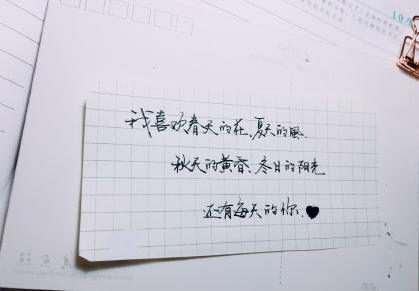 我喜欢春天的花、夏天的風、
秋天的黄昏、冬日的阳光
还有每天的你、♥